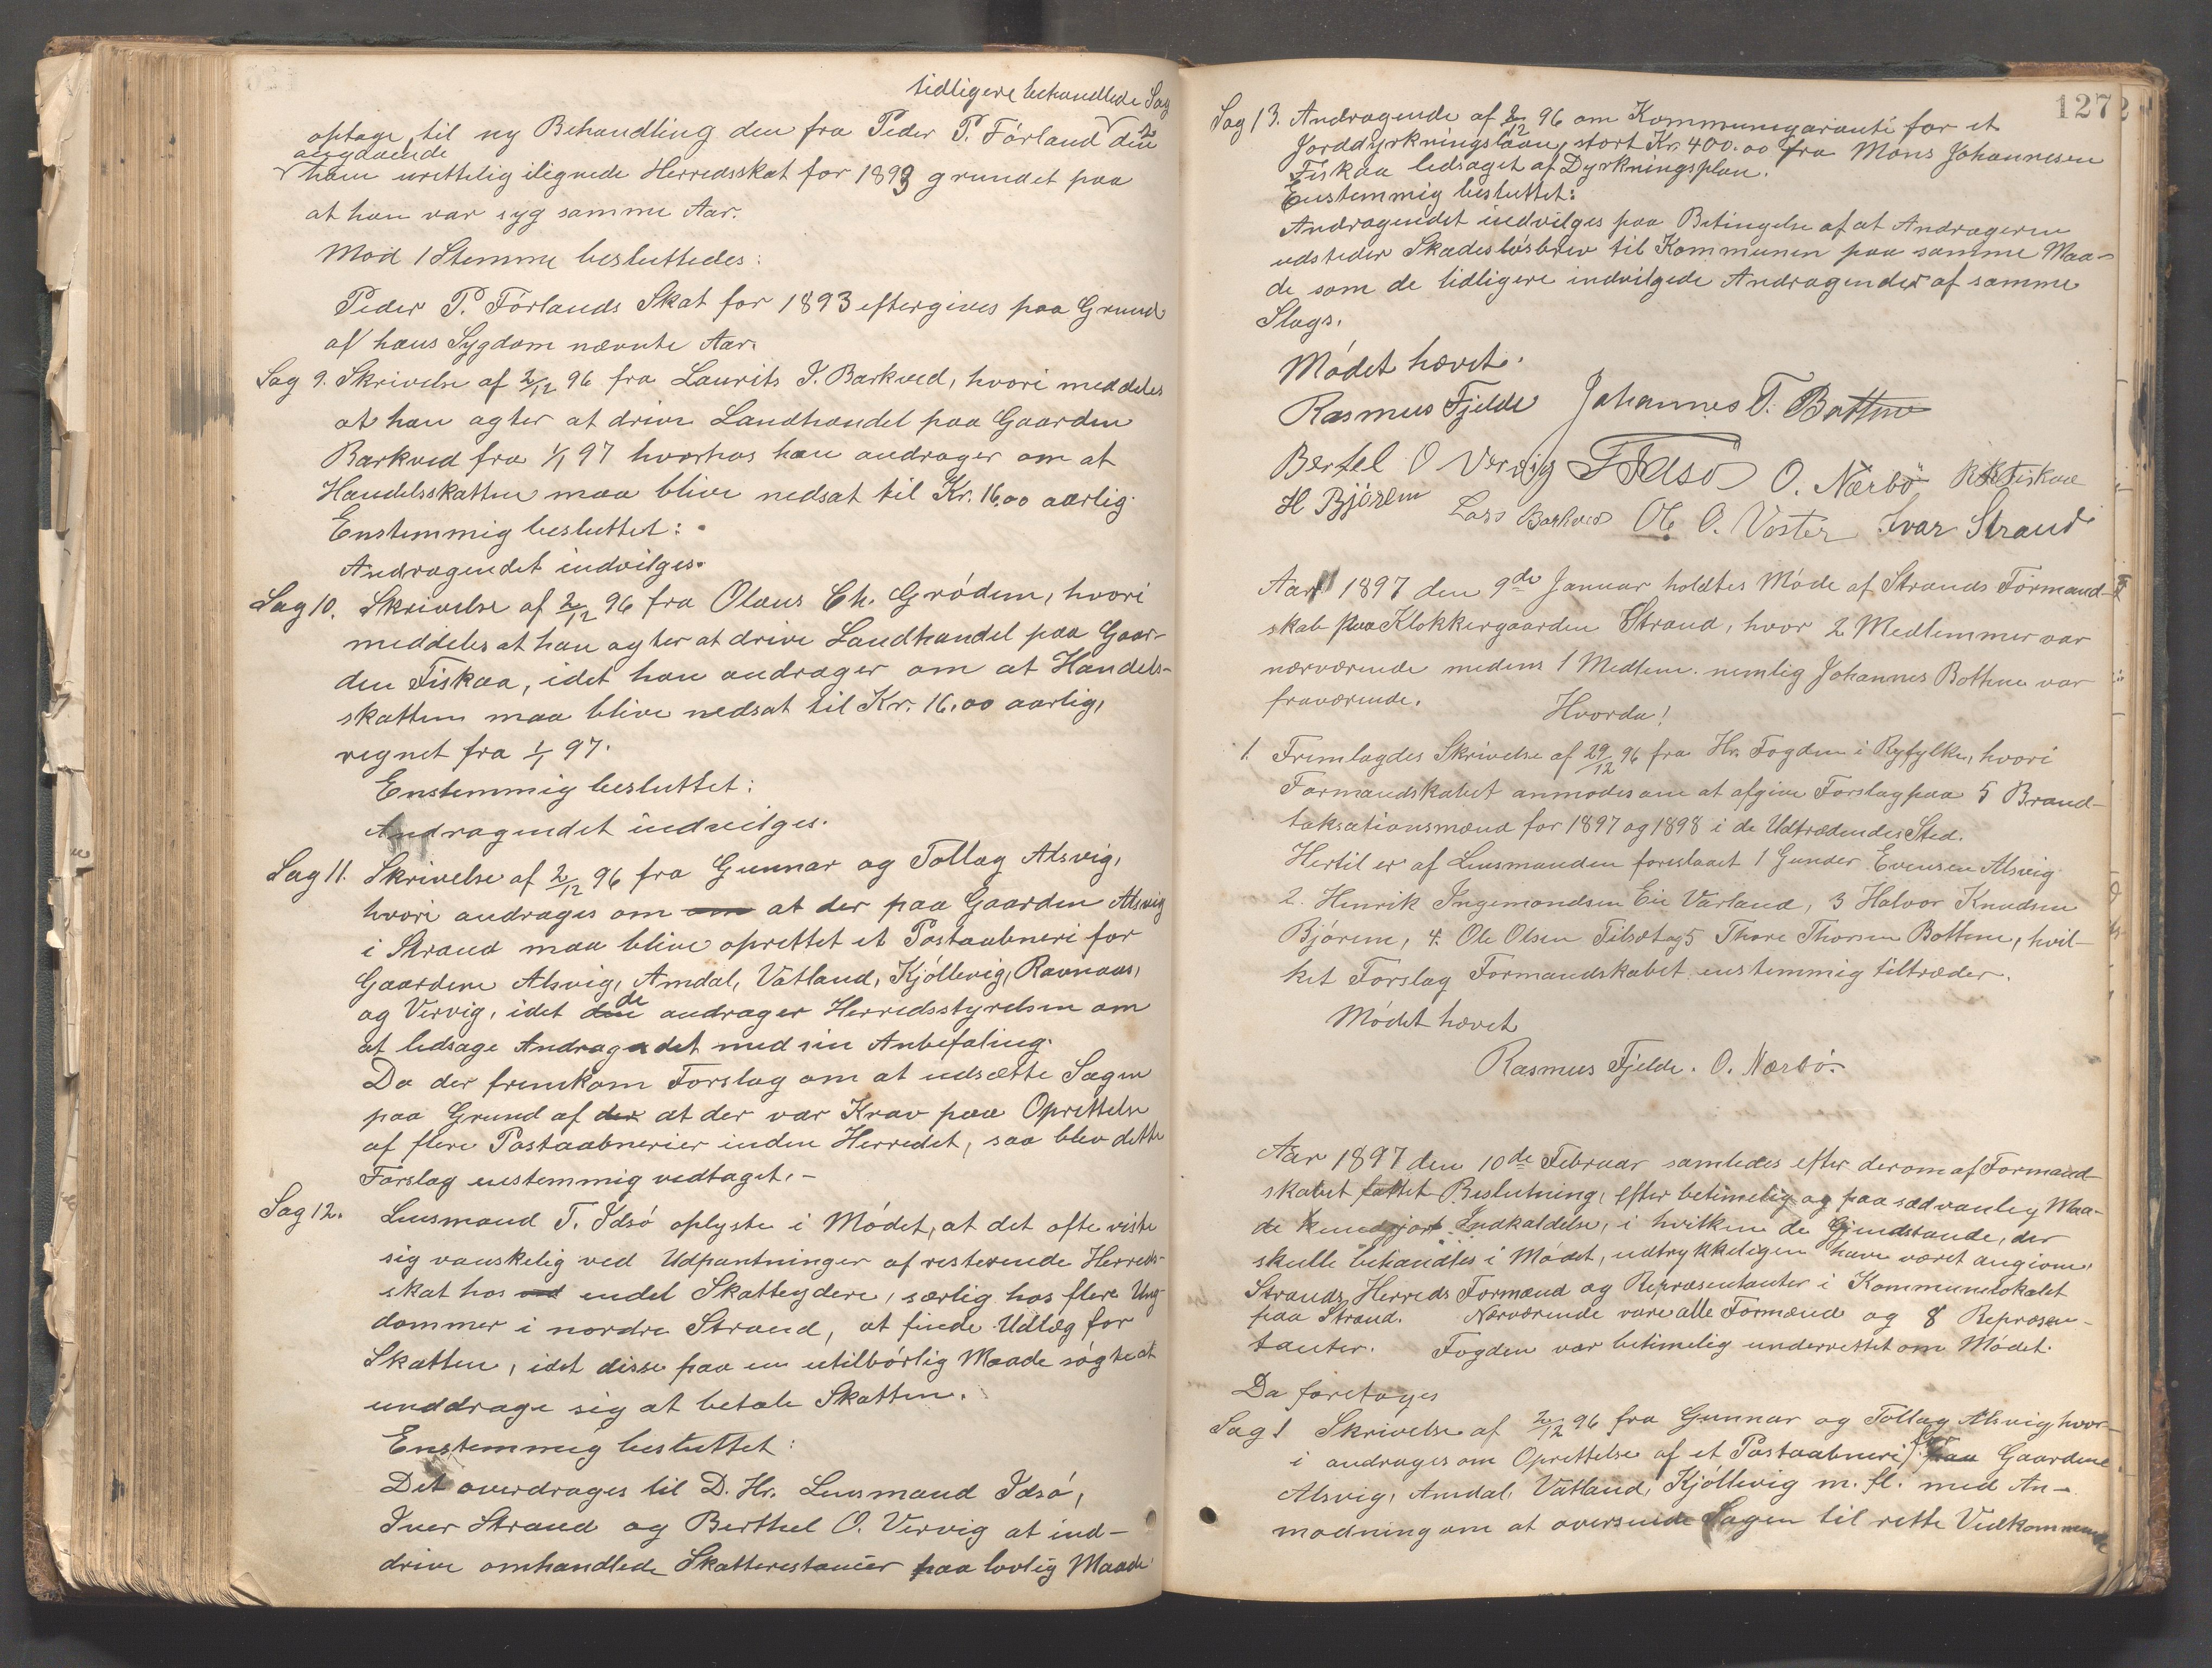 tidligere behandlede Sag
optage til ny Behandling den fra Peder P. Förland den 2
angaaende
ham urettelig ilignede Herredsskat for 1893 grundet paa
at han var syg samme Aar.
Mod 1 Stemme besluttedes:
Peder P. Förlands Skat for 1893 eftergives paa Grund
af hans Sygdom nævnte Aar.
Sag 9. Skrivelse af 2/12 96 fra Laurits J. Barkved, hvori meddeles
at han agter at drive Landhandel paa Gaarden
Barkved fra 1/1 97 hvorhos han andrager om at
Handelsskatten maa blive nedsat til Kr. 16,00 aarlig.
Enstemmig besluttet:
Andragendet indvilges.
Sag 10. Skrivelse af 2/12 96 fra Olaus Ch. Grödem, hvori
meddeles at han agter at drive Landhandel paa Gaar-
den Fiskaa, idet han andrager om at Handels-
skatten maa blive nedsat til Kr. 16,00 aarlig,
regnet fra 1/1 97.
Enstemmig besluttet:
Andragendet indvilges.
Sag 11. Skrivelse af 2/12 96 fra Gunnar og Tollag Alsvig,
hvori andrages om om at der paa Gaarden Alsvig
i Strand maa blive oprettet et Postaabneri for
Gaardene Alsvig, Amdal, Vatland, Kjöllevig, Ravnaas,
og Vervig, idet den de andrager Herredsstyrelsen om
at ledsage Andragendet med sin Anbefaling.
Da der fremkom Forslag om at udsætte Sagen
paa Grund af der at der var Krav paa Oprettelse
af flere Postaabnerier inden Herredet, saa blev dette
Forslag enstemmig vedtaget. -
Sag 12. Lensmand T. Idsö oplyste i Mödet, at det ofte viste
sig vanskelig ved Udpantninger af resterende Herreds-
skat hos endel Skatteydere, særlig hos flere Ung
dommer i nordre Strand, at finde Udlæg for
Skatten, idet disse paa en utilbörlig Maade sögte at
unddrage sig at betale Skatten.
Enstemmig besluttet:
Det overdrages til D. Hr. Lensmand Idsö,
Iver Strand og Berthel O. Vervig at ind-
drive omhandlede Skatterestancer paa lovlig Maade
127
Sag 13. Andragende af 2/12 96 om Kommunegaranti for et
Jorddyrkningslaan, stort Kr. 400.00 fra Mons Johannesen
Fiskaa ledsaget af Dyrkningsplan.
Enstemmig besluttet:
Andragendet indvilges paa Betingelse af at Andrageren
udsteder Skadeslösbrev til Kommunen paa samme Maa-
de som de tidligere indvilgede Andragender af samme
Slags.
Mödet hævet.
Rasmus Fjelde Johannes T. Bottne
Bertel O Vervig T Idsö O. Nærbö Fiskaa
H Björem Lars Barkved Ole O. Voster Ivar Strand
Aar 1897 den 9de Januar holdtes Möde af Strands Formand-
skab paa Klokkergaarden Strand, hvor 2 Medlemmer var
nærværende medens 1 Medlem nemlig Johannes Bottne var
fraværende.
Hvorda!
1. Fremlagdes Skrivelse af 29/12 96 fra Hr. Fogden i Ryfylke, hvori
Formandskabet anmodes om at afgive Forslag paa 5 Brand-
taksationsmænd for 1897 og 1898 i de Udtrædendes Sted.
Hertil er af Lensmanden foreslaaet 1 Gunder Evensen Alsvig
2. Henrik Ingemondsen Eie Varland, 3 Halvor Knudsen
Björem, 4. Ole Olsen Tilsæt og 5 Thore Thorsen Bottne, hvil-
ket Forslag Formandskabet enstemmig tiltræder.
Mödet hævet
Rasmus Fjelde. O. Nærbö.
Aar 1897 den 10de Februar samledes efter derom af Formand-
skabet fattet Beslutning, efter betimelig og paa sædvanlig Maa-
de kundgjort Indkaldelse, i hvilken de Gjenstande, der
skulle behandles i Mödet, udtrykkeligen have været angivne,
Strands Herreds Formænd og Repræsentanter i Kommunelokalet
paa Strand. Nærværende vare alle Formænd og 8 Repræsen-
tanter. Fogden var betimelig underrettet om Mödet.
Da foretoges
Sag 1 Skrivelse af 2/12 96 fra Gunnar og Tollag Alsvig hvor-
i andrages om Oprettelse af et Postaabneri for paa Gaardene
Alsvig, Amdal, Vatland, Kjöllevig m. fl. med An-
modning om at oversende Sagen til rette Vedkommende